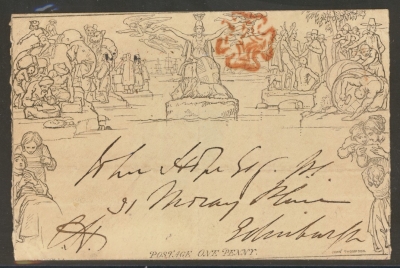 John Hope Esq.
31 Moray Place
Edinburgh
POSTAGE ONE PENNY.